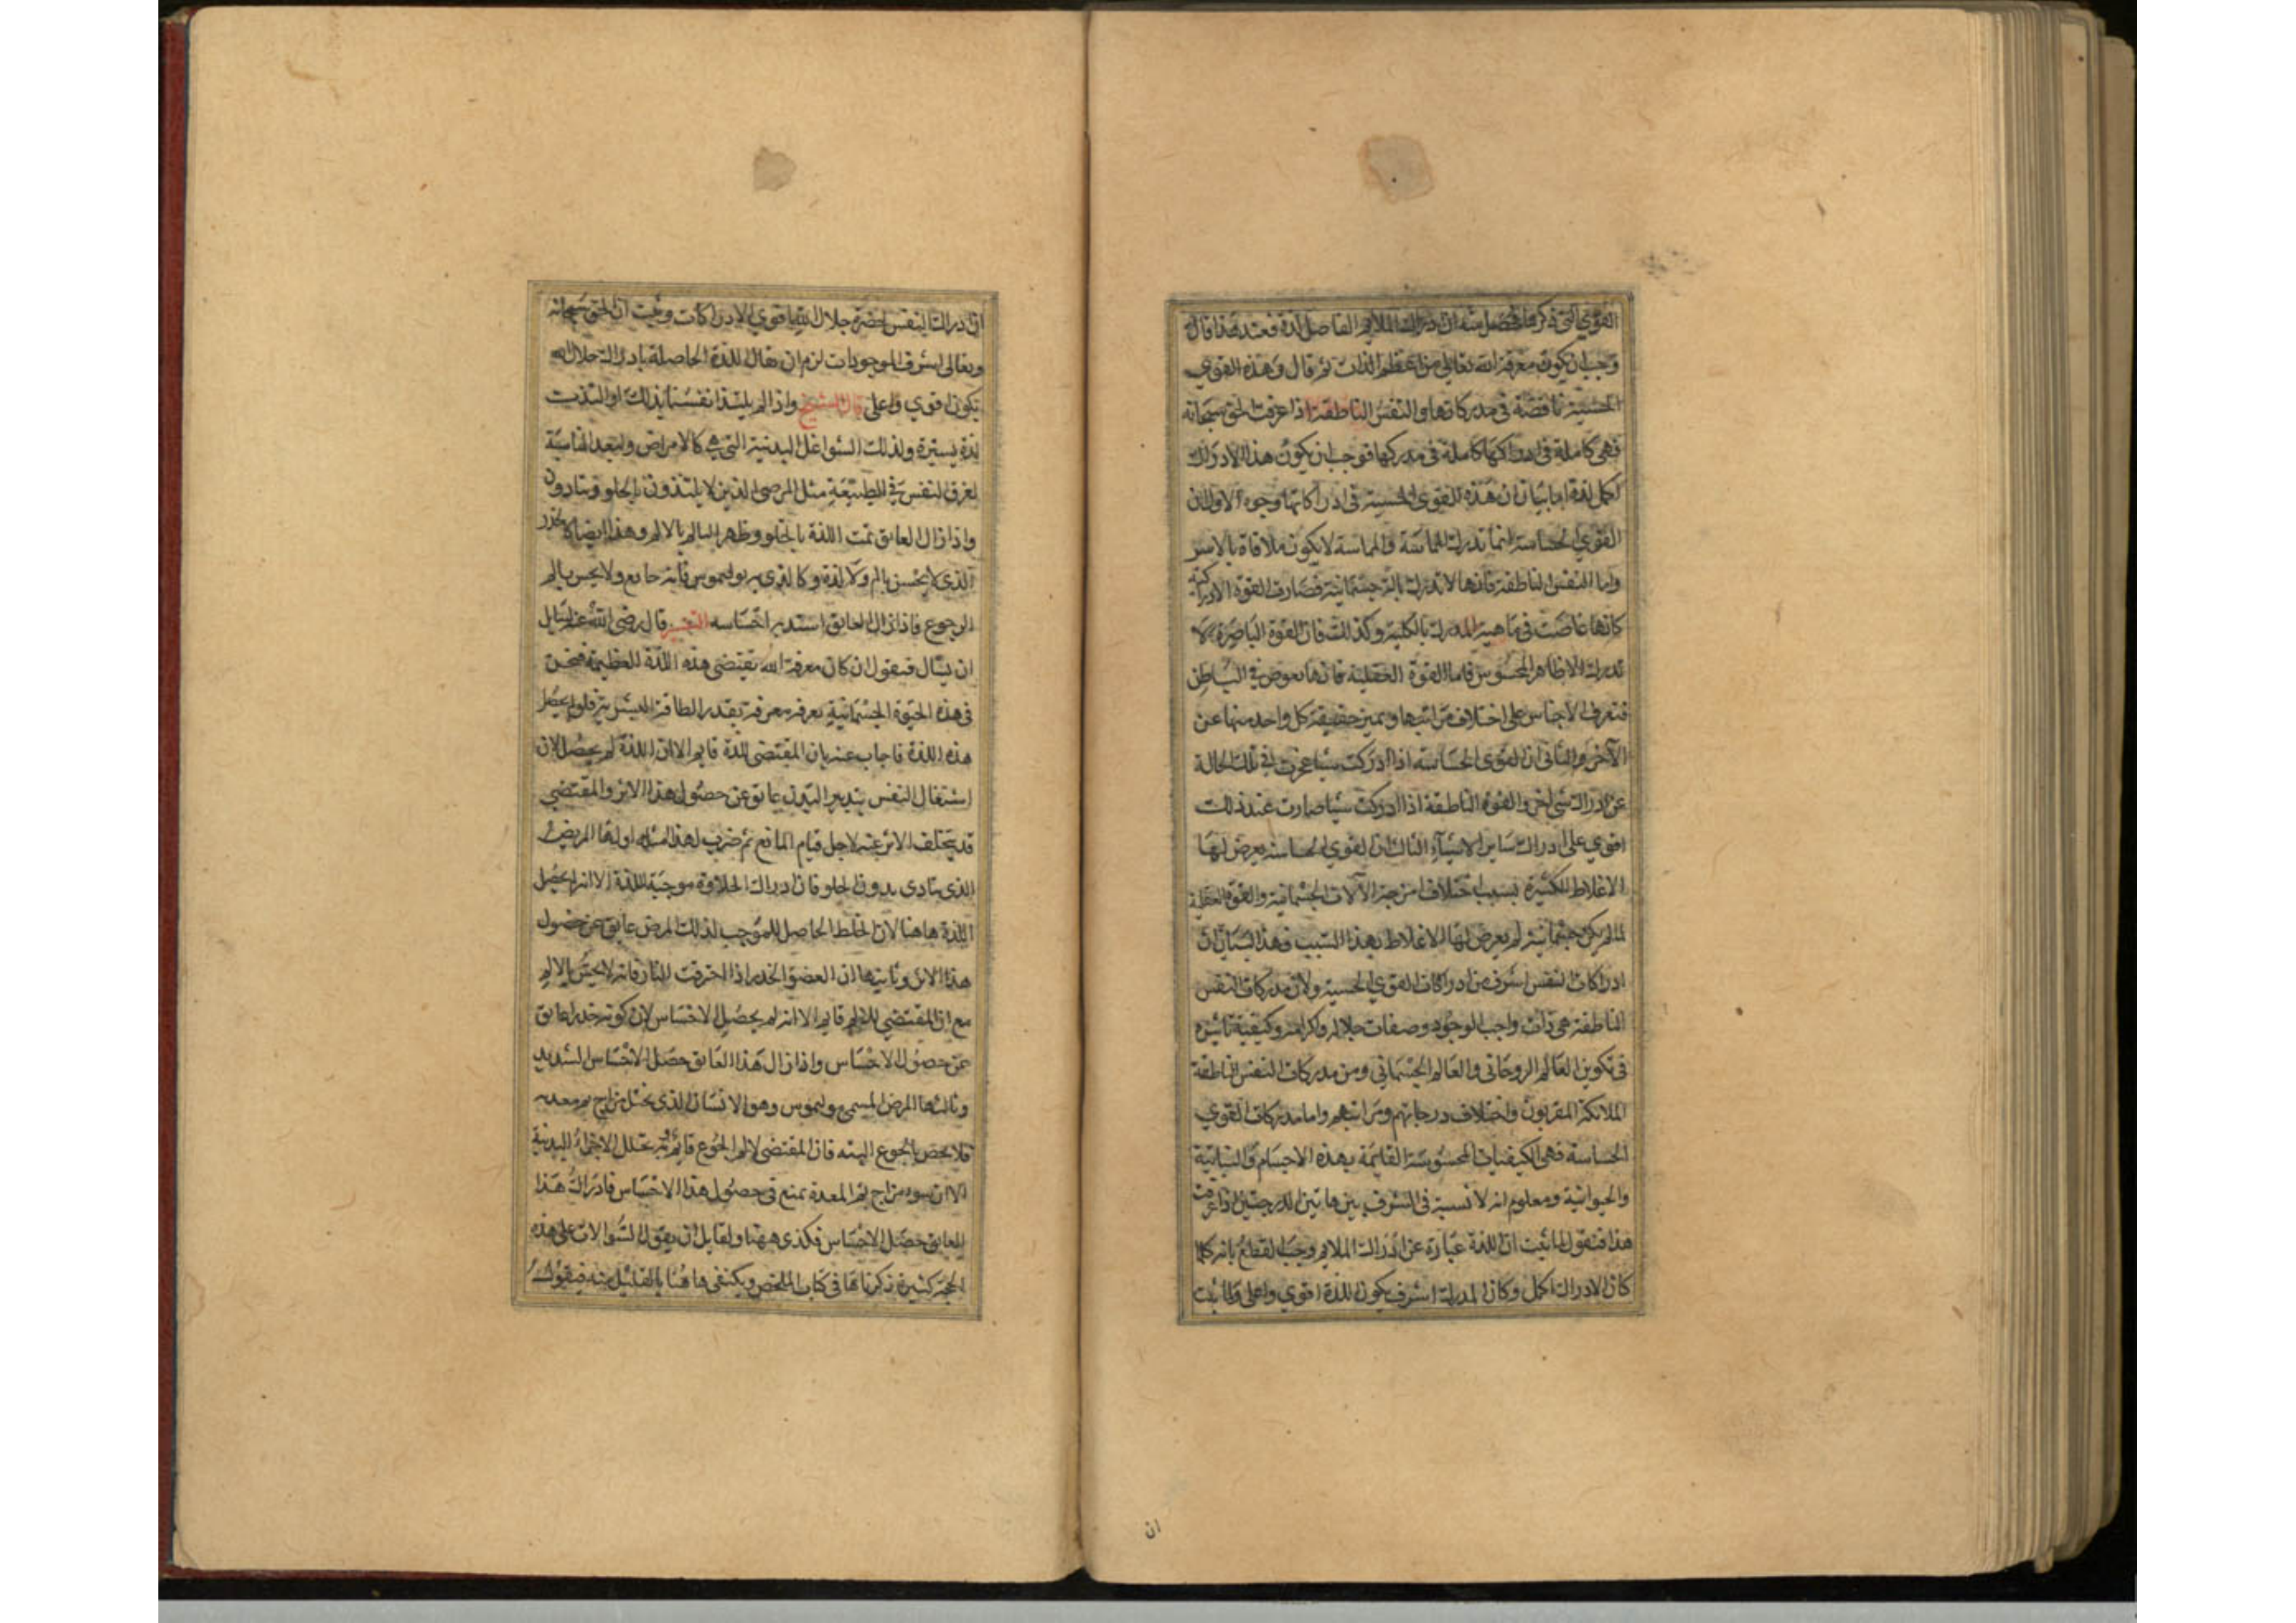 القوي التي ذكرها فحصل منه ان ادراك الملايم الفاضل لذة فعند هذا قال
وجب ان يكون معرفة الله تعالي من اعظم اللذات ثم قال وهذه القوي
الحسية ناقصة في مدركاتها والنفس الناطقة اذا عرفت الحق سبحانه
فهي كاملة في ادراكها كاملة في مدركها فوجب ان يكون هذا الادراك
اكمل لذة اما بيان ان هذه القوي الحسية في ادراكاتها وجوه الاول ان
القوي الحساسة انما تدرك بالمماسة والمماسة لا يكون ملاقاة بالاسر
واما النفس الناطقة فانها لا تدرك بالة جسمانية فصارت القوة الادراكية
كانها غاصت في ماهية المدرك بالكلية وكذلك فان القوة الباصرة لا
تدرك الا ظاهر المحسوس فاما القوة العقلية فانها تغوص في الباطن
فتعرف الاجناس على اختلاف مراتبها ويميز حقيقة كل واحد منها عن
الآخر والثاني ان القوي الحساسة اذا ادركت شيا عجزت في تلك الحالة
عن ادراك شي اخر والقوة الناطقة اذا ادركت شيا صارت عند ذلك
اقوي على ادراك ساير الاشياء الثالث ان القوي الحاسة يعرض لها
الاغلاط الكثيرة بسبب اختلاف امزجة الآلات الجسمانية والقوة العقلية
لما لم يكن جسمانية لم يعرض لها الاغلاط بهذا السبب فهذا لبيان ان
ادراكات النفس اشرف من ادراكات القوي الحسية ولان مدركات النفس
الناطقة هي ذات واجب الوجود وصفات جلاله واكرامه وكيفية تاثيره
في تكوين العالم الروحاني والعالم الجسماني ومن مدركات النفس الناطقة
الملائكة المقربون واختلاف درجاتهم ومراتبهم واما مدركات القوي
الحساسة فهي الكيفيات المحسوسة القايمة بهذه الاجسام والنباتية
والحيوانية ومعلوم انه لا نسبة في الشرف بين هاتين الدرجتين اذا عرفت
هذا فنقول لما ثبت ان اللذة عبارة عن ادراك الملايم وجب القطع بانه كلما
كان الادراك اكمل وكان المدرك اشرف يكون اللذة اقوي واعلى ولما ثبت
ان
ان ادراك النفس لحضرة جلال الله اقوي الادراكات وثبت ان الحق سبحانه
وتعالى اشرف الموجودات لزم ان يقال اللذة الحاصلة بادراك جلال الله
يكون اقوي واعلى قال الشيخ واذا لم يلتذ انفسنا بذلك او التذت
لذة يسيرة ولذلك الشواغل البدنية التي هي كالامراض ولبعد المناسبة
لغرق النفس في الطبيعة مثل المرضى الذين لا يلتذون بالحلو ويتاذون
واذا زال العايق تمت اللذة بالحلو وظهر التالم بالالم وهذا ايضا كالخدر
الذي لا يحس بالم ولا لذة وكالذي به بوليموس فانه جايع ولا يحس بالم
الجوع فاذا زال العايق استد به احساسه التفسير قال رضي الله عنه لسايل
ان يسال فيقول ان كان معرفة الله تقتضي هذه اللذة العظيمة فنحن
في هذه الحيوة الجسمانية نعرفه معرفة بقدر الطاقة البشرية فلم لم يحصل
هذه اللذة فاجاب عنه بان المقتضي للذة قايم الا ان اللذة لم يحصل لان
اشتغال النفس بتدبير البدن عايق عن حصول هذا الاثر والمقتضي
قد يتخلف الاثر عنه لاجل قيام المانع ثم ضرب لهذا امثلة اولها المريض
الذي يتاذى بذوق الحلو فان ادراك الحلاوة موجبة للذة الا انه لم يحصل
اللذة هاهنا لان الخلط الحاصل الموجب لذلك المرض عايق عن حصول
هذا الاثر وثانيها ان العضو الخدر اذا احترقت بالنار فانه لا يحس بالالم
مع ان المقتضي للالم قايم الا انه لم يحصل الاحساس لان كونه خدرا عايق
عن حصول الاحساس واذا زال هذا العايق حصل الاحساس الشديد
وثالثها المرض المسمي بوليموس وهو الانسان الذي يختل مزاج فم معدته
فلا يحس بالجوع البته فان المقتضي لالم الجوع قايم وهو تحلل الاجزاء البدنية
الا ان سوء مزاج فم المعدة يمنع من حصول هذا الاحساس فاذا زال هذا
العايق حصل الاحساس فكذي ههنا ولقايل ان يقول السوالات على هذه
الحجة كثيرة ذكرناها في كتاب الملخص ويكتفى هاهنا بالقليل منه فيقول